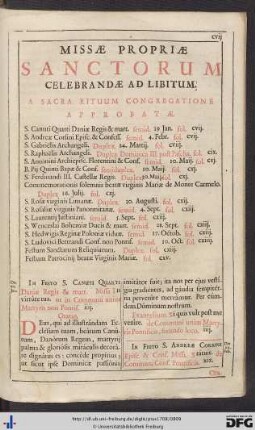 cvij
MISSÆ PROPRIÆ
SANCTORUM
CELEBRANDÆ AD LIBITUM,
A SACRA RITUUM CONGREGATIONE
APPROBATÆ.
S. Canuti Quarti Daniæ Regis & mart. semid. 19 Jan. fol. cvij.
S. Andreæ Corsini Episc. & Confess. semid. 4. Febr. fol. cvij.
S. Gabrielis Archangeli. Duplex 24. Martij. fol. cvij.
S. Raphaëlis Archangeli. Duplex Dominica III. post Pascha, fol. cix.
S. Antonini Archiepisc. Florentini & Conf. semid. 10. Maij. fol. cvj.
B. Pij Quinti Papæ & Conf. Semiduplex. Maij. fol.
S. Ferdinandi III. Castellæ Regis. Duplex. 30. Maij. fol.
Commemorationis solemnis beatæ virginis Mariæ de Monte Carmelo.
Duplex 16. Julij. fol.
S. Rosæ virginis Limanæ. Duplex 30. Augusti. fol. cxij.
S. Rosaliæ virginis Panormitanæ. semid. 4. Sept. fol.
S. Laurentij Justiniani. semid. 5 Sept. fol. cxiij.
S. Wenceslai Bohemiæ Ducis & mart. semid. 28. Sept. fol.
S. Hedwigis Reginæ Poloniæ viduæ. semid. 17. Octob. fol. cxiij.
S. Ludovici Bertrandi Conf. non Pontif. semid. 10. Oct. fol.
Festum Sanctarum Reliquiarum. Duplex. fol. cxiv.
Festum Patrocinij beatæ Virginis Mariæ. fol. cxv.
IN FESTO S. CANUTI QUARTI
Daniæ Regis & mart. Missa
virtute tua. ut in Communi unius
Martyris non Pontif.
Oratio.
DEus, qui ad illustrandam Ecclesiam
tuam, beatum Canutum,
Danorum Regem, martyrij
palma & gloriosis miraculis decorare
dignatus es: concede propitius
ut sicut ipse Dominicæ passionis
imitator fuit; ita nos per ejus vestigia
gradientes, ad gaudia sempiterna
pervenire mereamur. Per eundem
Dominum nostrum.
Evangelium. Si quis vult post me
venire. de Communi unius Martyris
Pontificis, secundo loco
IN FESTO S. ANDREÆ CORSINI
Episc. & Conf. Missa Statuit. de
Communi Conf. Pontificis.
http://dl.ub.uni-freiburg.de/diglit/
© Universitätsbibliothek Freiburg
gefördert durch die
DFG